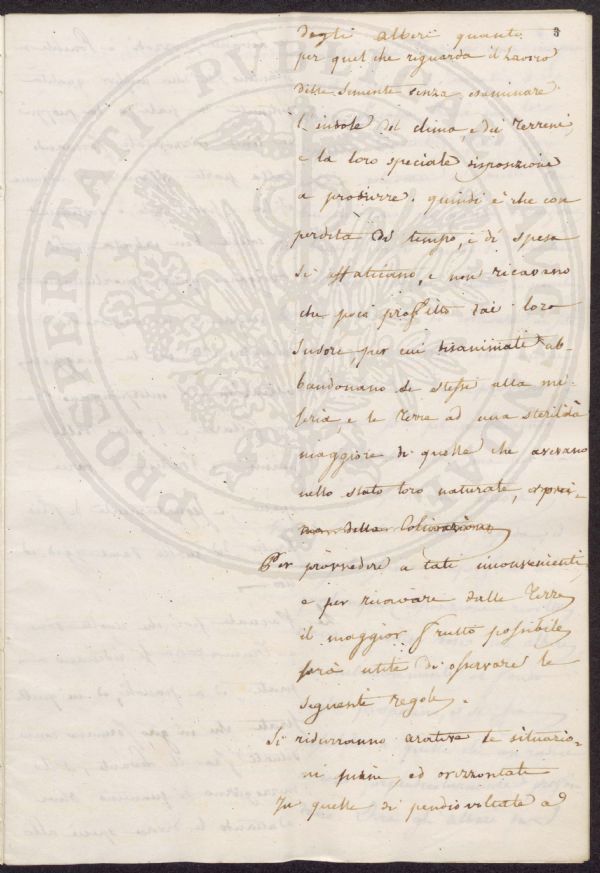 3
degli alberi quanto
per quel che riguarda il lavoro
delle semente senza esaminare
l'indole del clima, e dei terreni,
e la loro speciale disposizione
a produrre. quindi è che con
perdita di tempo, e di spese
si affaticano, e non ricavano
che poco profitto dai loro
sudore, per cui disanimati ab-
bandonano se stessi alla mi-
seria, e le terre ad una sterilità
maggiore di quelle che avevano
nello stato loro naturale, e pri-
ma della Coltivazione
Per provvedere a tali inconvenienti,
e per ricavare dalle Terre
il maggior frutto possibile
sarà utile di osservare le
seguenti regole.
Si ridurranno arative le situazio-
ni piane, ed orizzontali
In quelle di pendio voltate a
PROSPERITATI PUBLICAE